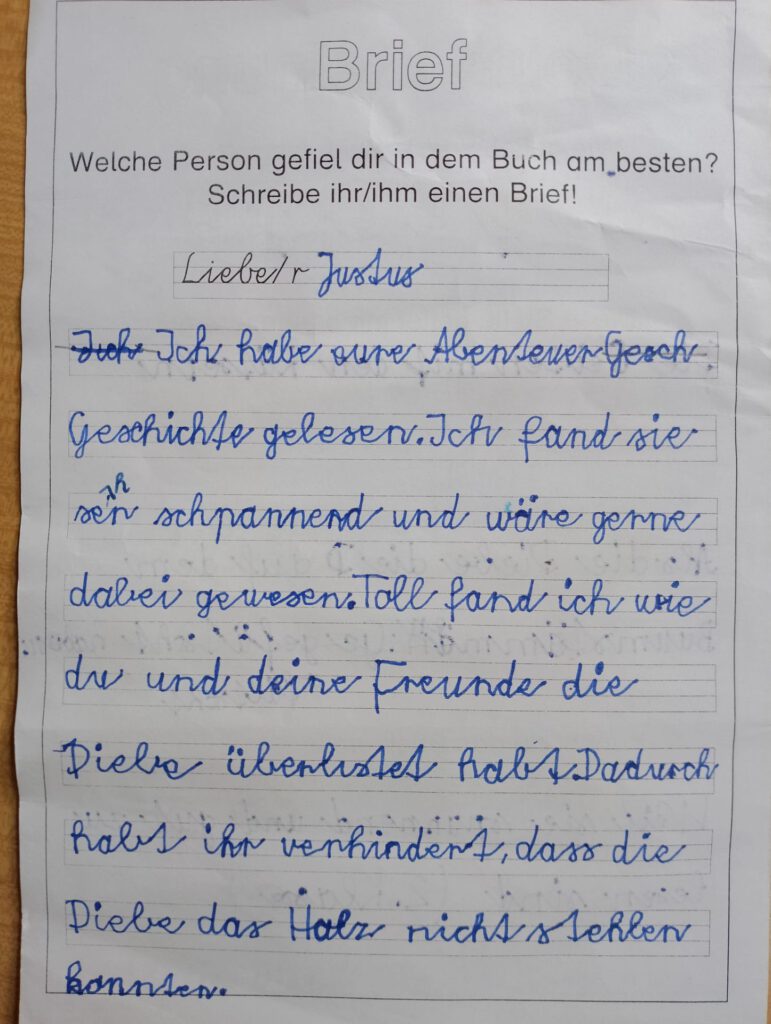 Brief
Welche Person gefiel dir in dem Buch am besten?
Schreibe ihr/ihm einen Brief!
Liebe/r Justus
Ich habe eure Abenteuer Gesch
Geschichte gelesen. Ich fand sie
sehr schpannend und wäre gerne
dabei gewesen. Toll fand ich wie
du und deine Freunde die
Diebe überlistet habt. Dadurch
habt ihr verhindert, dass die
Diebe das Holz nicht stehlen
konnten.